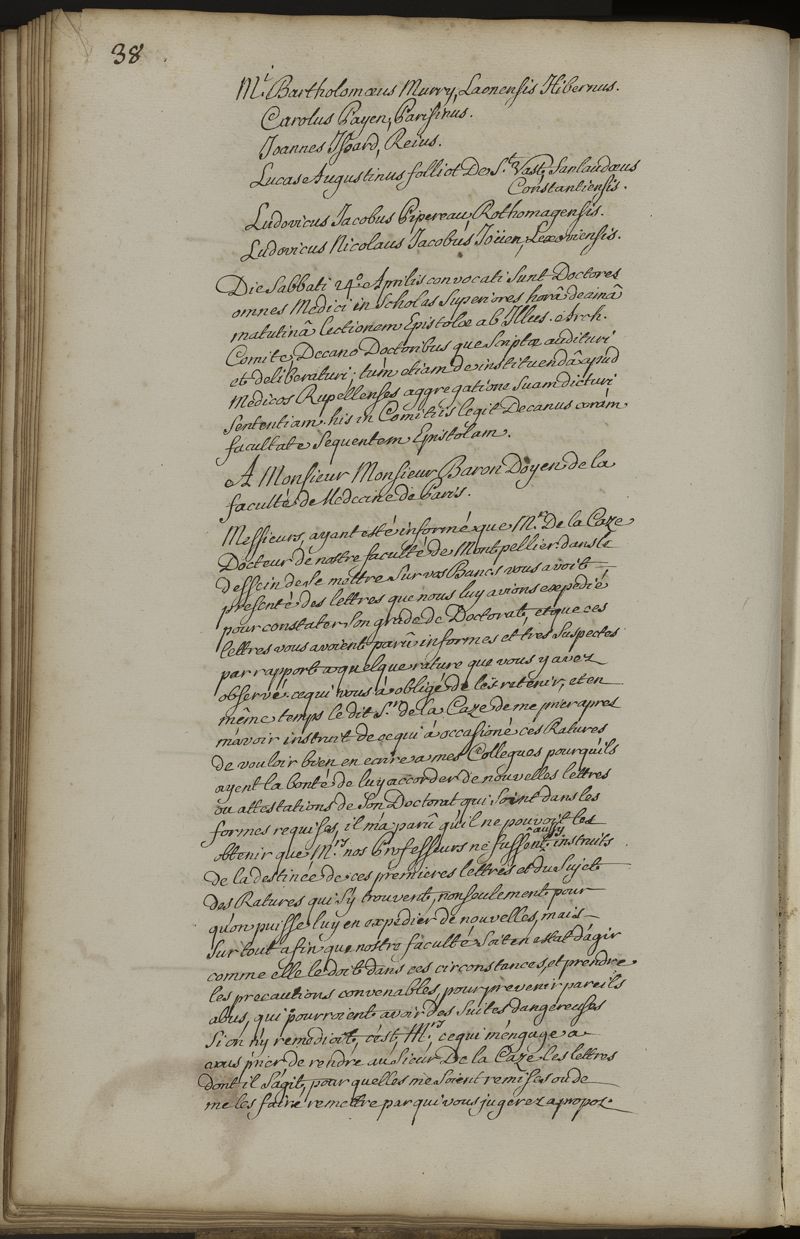 38
M.i Bartholomæus Murry, Laonensis Hibernus.
Carolus Payen, Parisinus.
Joannes Isoard, Reius.
Lucas Augustinus folliot De S.t Vast, Sanlaudæus
Constantiensis.
Ludovicus Jacobus Pipereau, Rothomagensis.
Ludovicus Nicolaus Jacobus Joüen, Lexoviensis.
Die Sabbati 24.o Aprilis convocati Sunt Doctores
omnes Medici in Scholas Superiores horâ decimâ
matutinâ lectionem Epistolæ ab Illus. Arch.
Comite, Decano Doctoribus que Scriptæ audituri
et deliberaturi; tum etiam de instituendâ apud
Medicos Rupellenses aggregatione Suam dicturi
Sententiam. his in Comitiis legit Decanus coram
facultate Sequentem Epistolam.
A Monsieur Monsieur Baron Doyen de la
faculté de Medecine de Paris.
Messieurs, ayant esté informé que M.r De la Caze
Docteur de nostre faculté de Montpellier dans le
dessein de Se mettre Sur vos Bancs vous avoit
presenté des lettres que nous luy avions expedié
pour constater Son grade de Doctorat, et que ces
lettres vous avoient parû informes et tres Suspectes
par rapport a quelque rature que vous y avez
observé. ce qui vous à obligé de les retenir, et en
même temps le dit S.r de la Caze de me prier apres
m'avoir instruit de ce qui à occasioné ces Ratures
de vouloir bien en ecrire a mes Collegues pourquils
ayent la bonté de luy accorder de nouvelles lettres
ou attestations de Son Doctorat qui Soint dans les
formes requises, il m'a parû qu'il ne pouvoit les
obtenir que M.rs nos Professeurs ne fussent aussy instruits
de la destinée de ces premieres lettres et du Sujet
des Ratures qui S'y trouvent, non seulement pour
qu'on puisse luy en expedier de nouvelles, mais
Sur tout afin que nostre faculté Soit en estat d'agir
comme elle le doit dans ces circonstances, et prendre
les precautions convenables, pour prevenir pareils
abus, qui pourroient avoir des Suites dangereuses
Si on n'y remedioit, c'est, M.rs ce qui m'engage a
vous prier de rendre au Sieur De la Caze les lettres
dont il S'agit, pour quelles me Soient remises ou de
me les faire remettre par qui vous jugerez apropos.